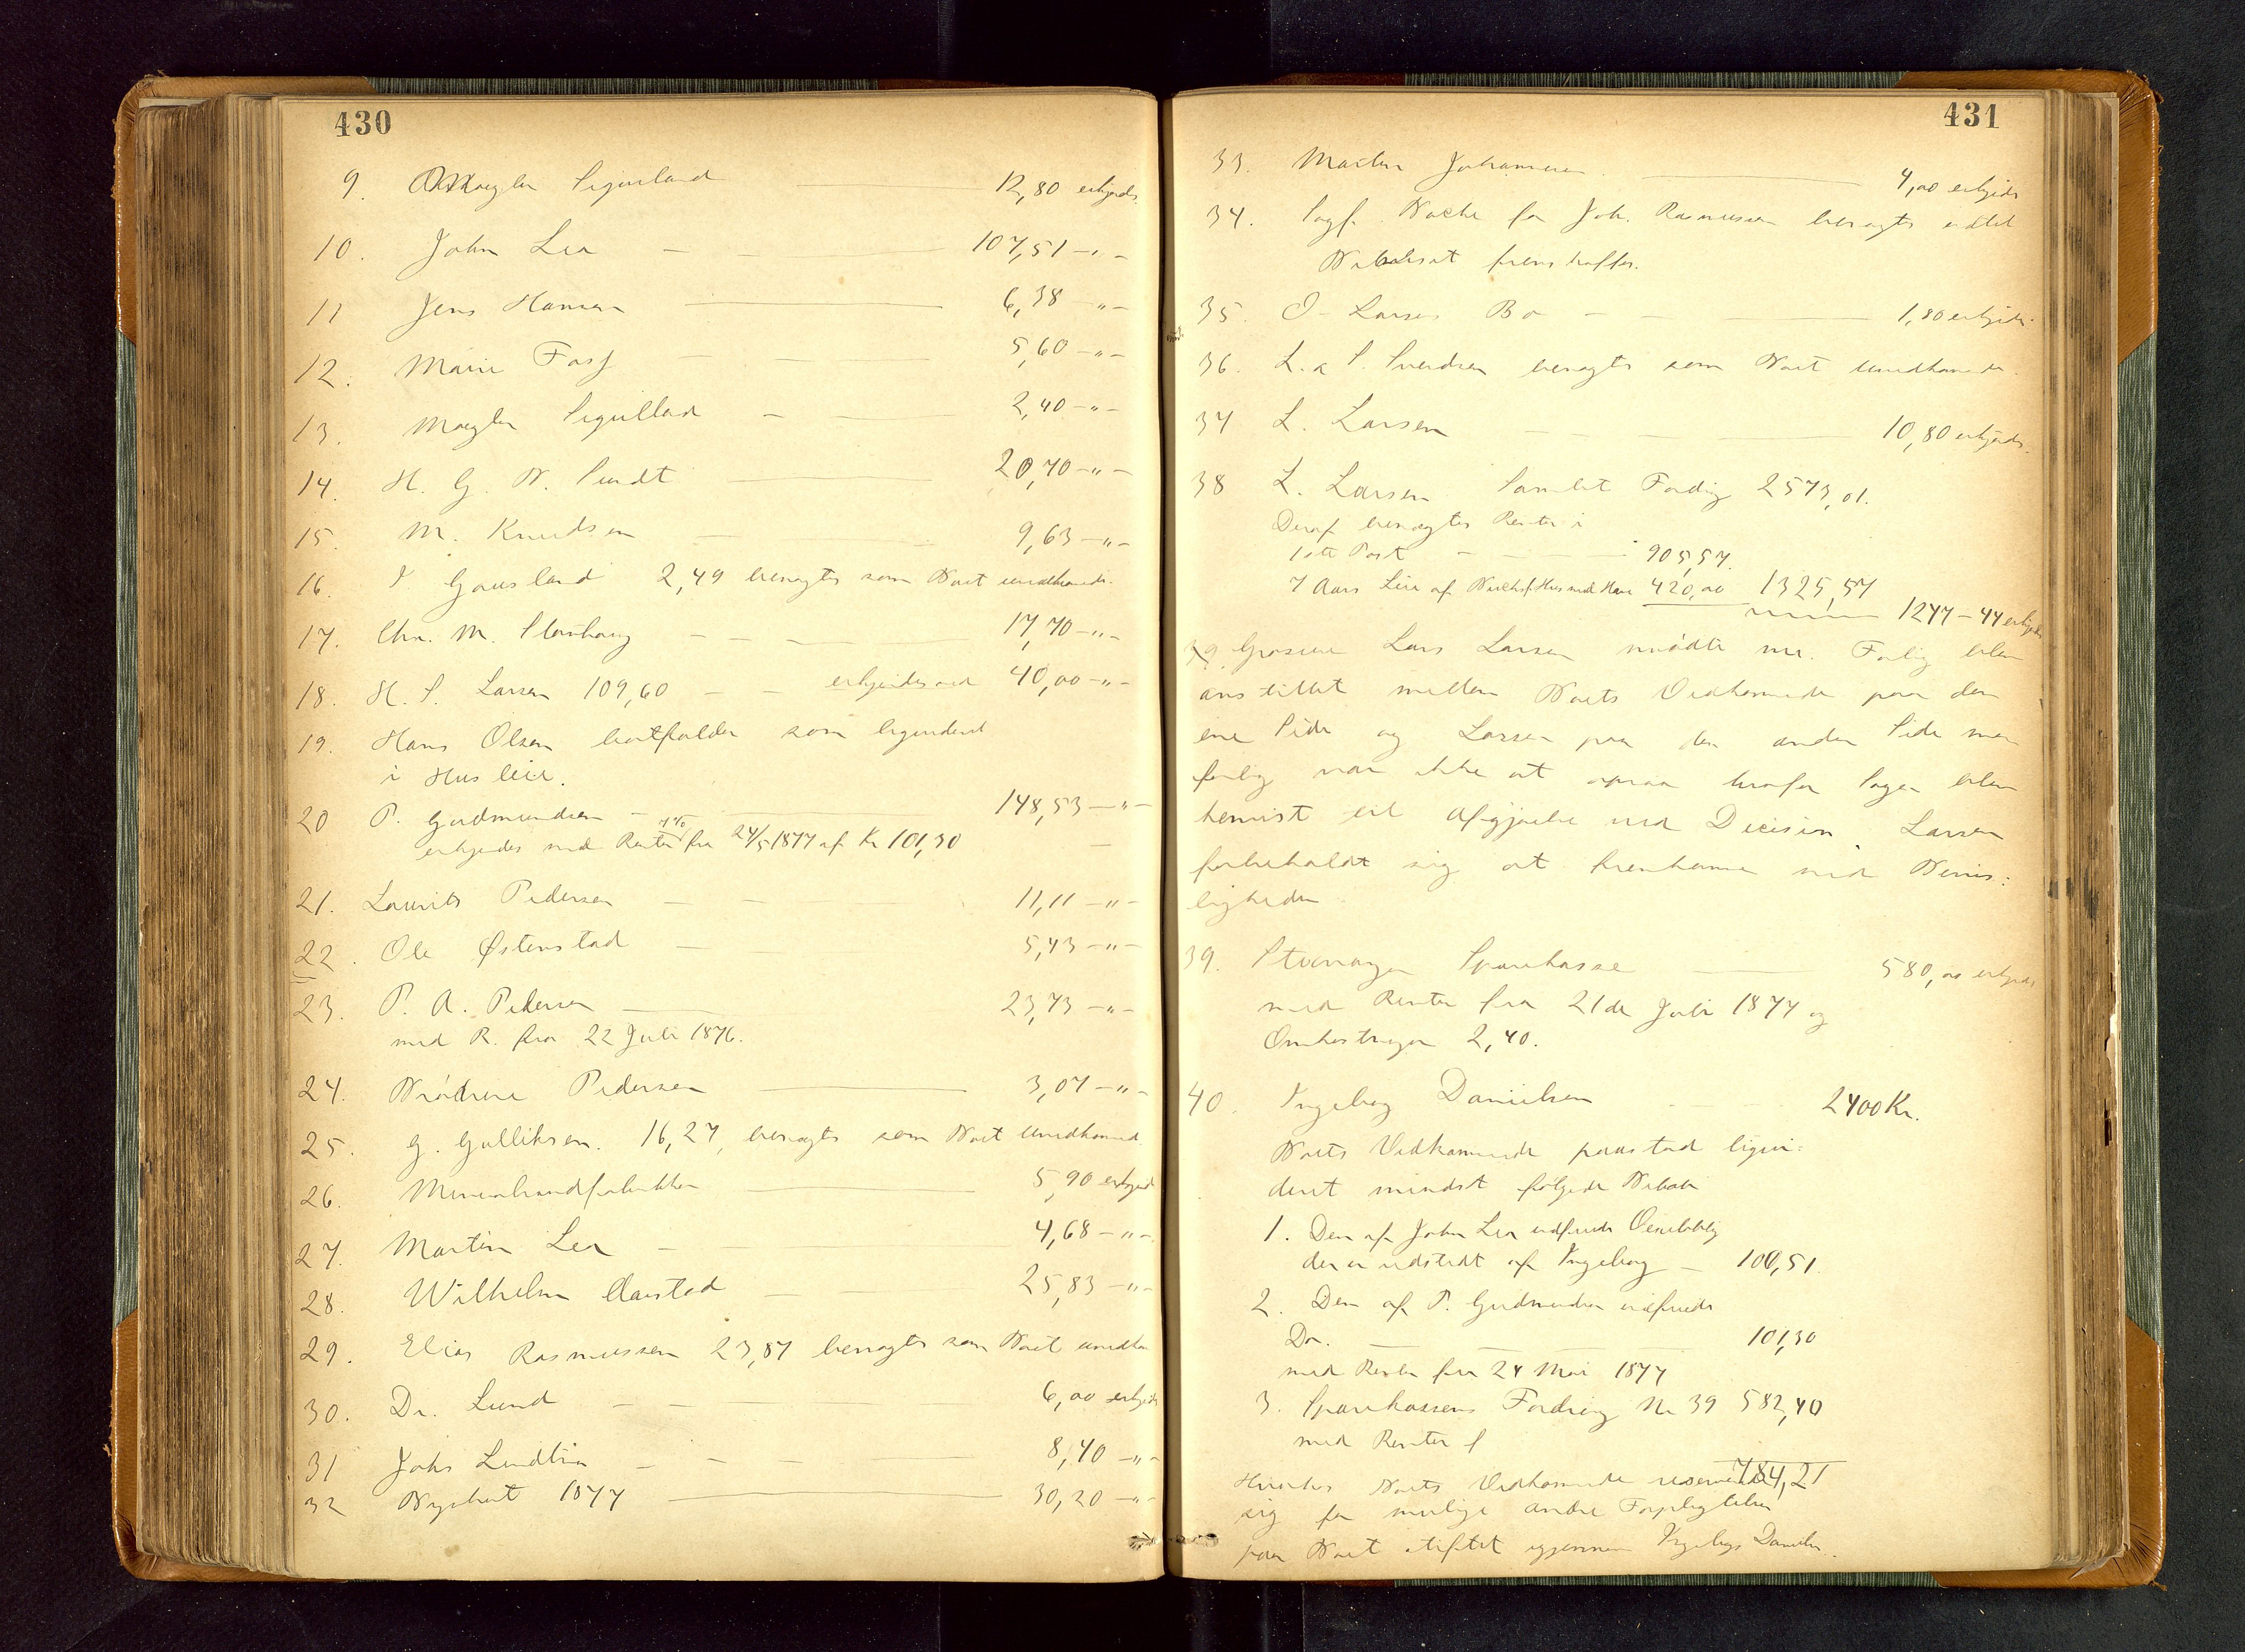 430
9. Sigurland 12,80 erkjendes
10. John Lea — — 107,51 —„—
11 Jens Hansen — 6,38 —„—
12. Marie Fosf — — 5,60 —„—
13. Magler — — 2,40 —„—
14. H. G. N. Sundt — 20,70 —„—
15. M. Knudsen — — 9,63 —„—
16. Gausland 2,49 benegtes som Boet uvedkomde.
17. Chr. M. — — 17,70 —„—
18. H. S. Larsen 109,60 — — erkjendes med 40,00 —„—
19. Hans Olsen bortfalder som ligvideret
i Husleie.
20 P. Gudmundsen — 148,53 —„—
erkjendes med Renter fra 24/5 1877 af Kr 101,30
21. Laurits Pedersen — — 11,11 —„—
22. Ole Østenstad — — 5,43 —„—
23. P. A. Pedersen — 23,73 —„—
med R. fra 22 Juli 1876.
24. Brødrene Pedersen — 3,07 —„—
25. G. Gulliksen. 16,27, benegtes som Boet uvedkommd.
26. — 5,90 erkjend
27. Martin Lea — — 4,68 —„—
28. Wilhelm Aarstad — — 25,83 —„—
29. Elias Rasmussen 23,87 benegtes som Boet uvedko
30. Dr. Lund — — 6,00 erkjends
31 Johs Lindtin — — — 8,40 —„—
32 Byskat 1877 — 30,20 —„—
431
33. Martin Johannesen. — 4,00 erkjends
34. Sagf. Bache for Joh. Rasmussen benegtes indtil
fremskaffes.
35. O. Larsen Bo — — — 1,80 erkjends.
36. L. & S. Svendsen benegtes som Boet uvedkommende.
37 L. Larsen — — — 10,80 erkjends.
38 L. Larsen Samlet Fordring 2573,01.
Deraf benegtes Renter i
1ste Post — — — 905,57.
7 Aars Leie af Hus med Have 420,00 1325,57
1247-44 erkjends
39. Lars Larsen mødte me. Forlig blev
anstillet mellem Boets Vedkommende paa den
ene Side og Larsen paa den anden Side men
forlig var ikke at opnaa hvorfor Sagen blev
henvist til Afgjørelse ved Decision. Larsen
forbeholdt sig at fremkomme med Bevis-
ligheder
39. Stavanger Sparekasse — 580,00 erkjends
med Renter fra 21de Juli 1877 og
Omkostninger 2,40.
40. Ingeborg Danielsen — — 2400 Kr.
Boets Vedkommende paastod ligvi-
deret mindst følgende Beløb
1. Den af John Lea indfriede
der er udstedt af Ingeborg — 100,51.
2. Den af P. Gudmundsen indfriede
Do. — — — 101,30
med Renter fra 24 Mai 1877
3. Sparekassens Fordring No 39 582,40
med Renter f
784,21
Hvorhos Boets Vedkommende reserverede
sig for mulige andre Forpligtelser
paa Boet stiftet gjennem Ingeborg Danielsen.